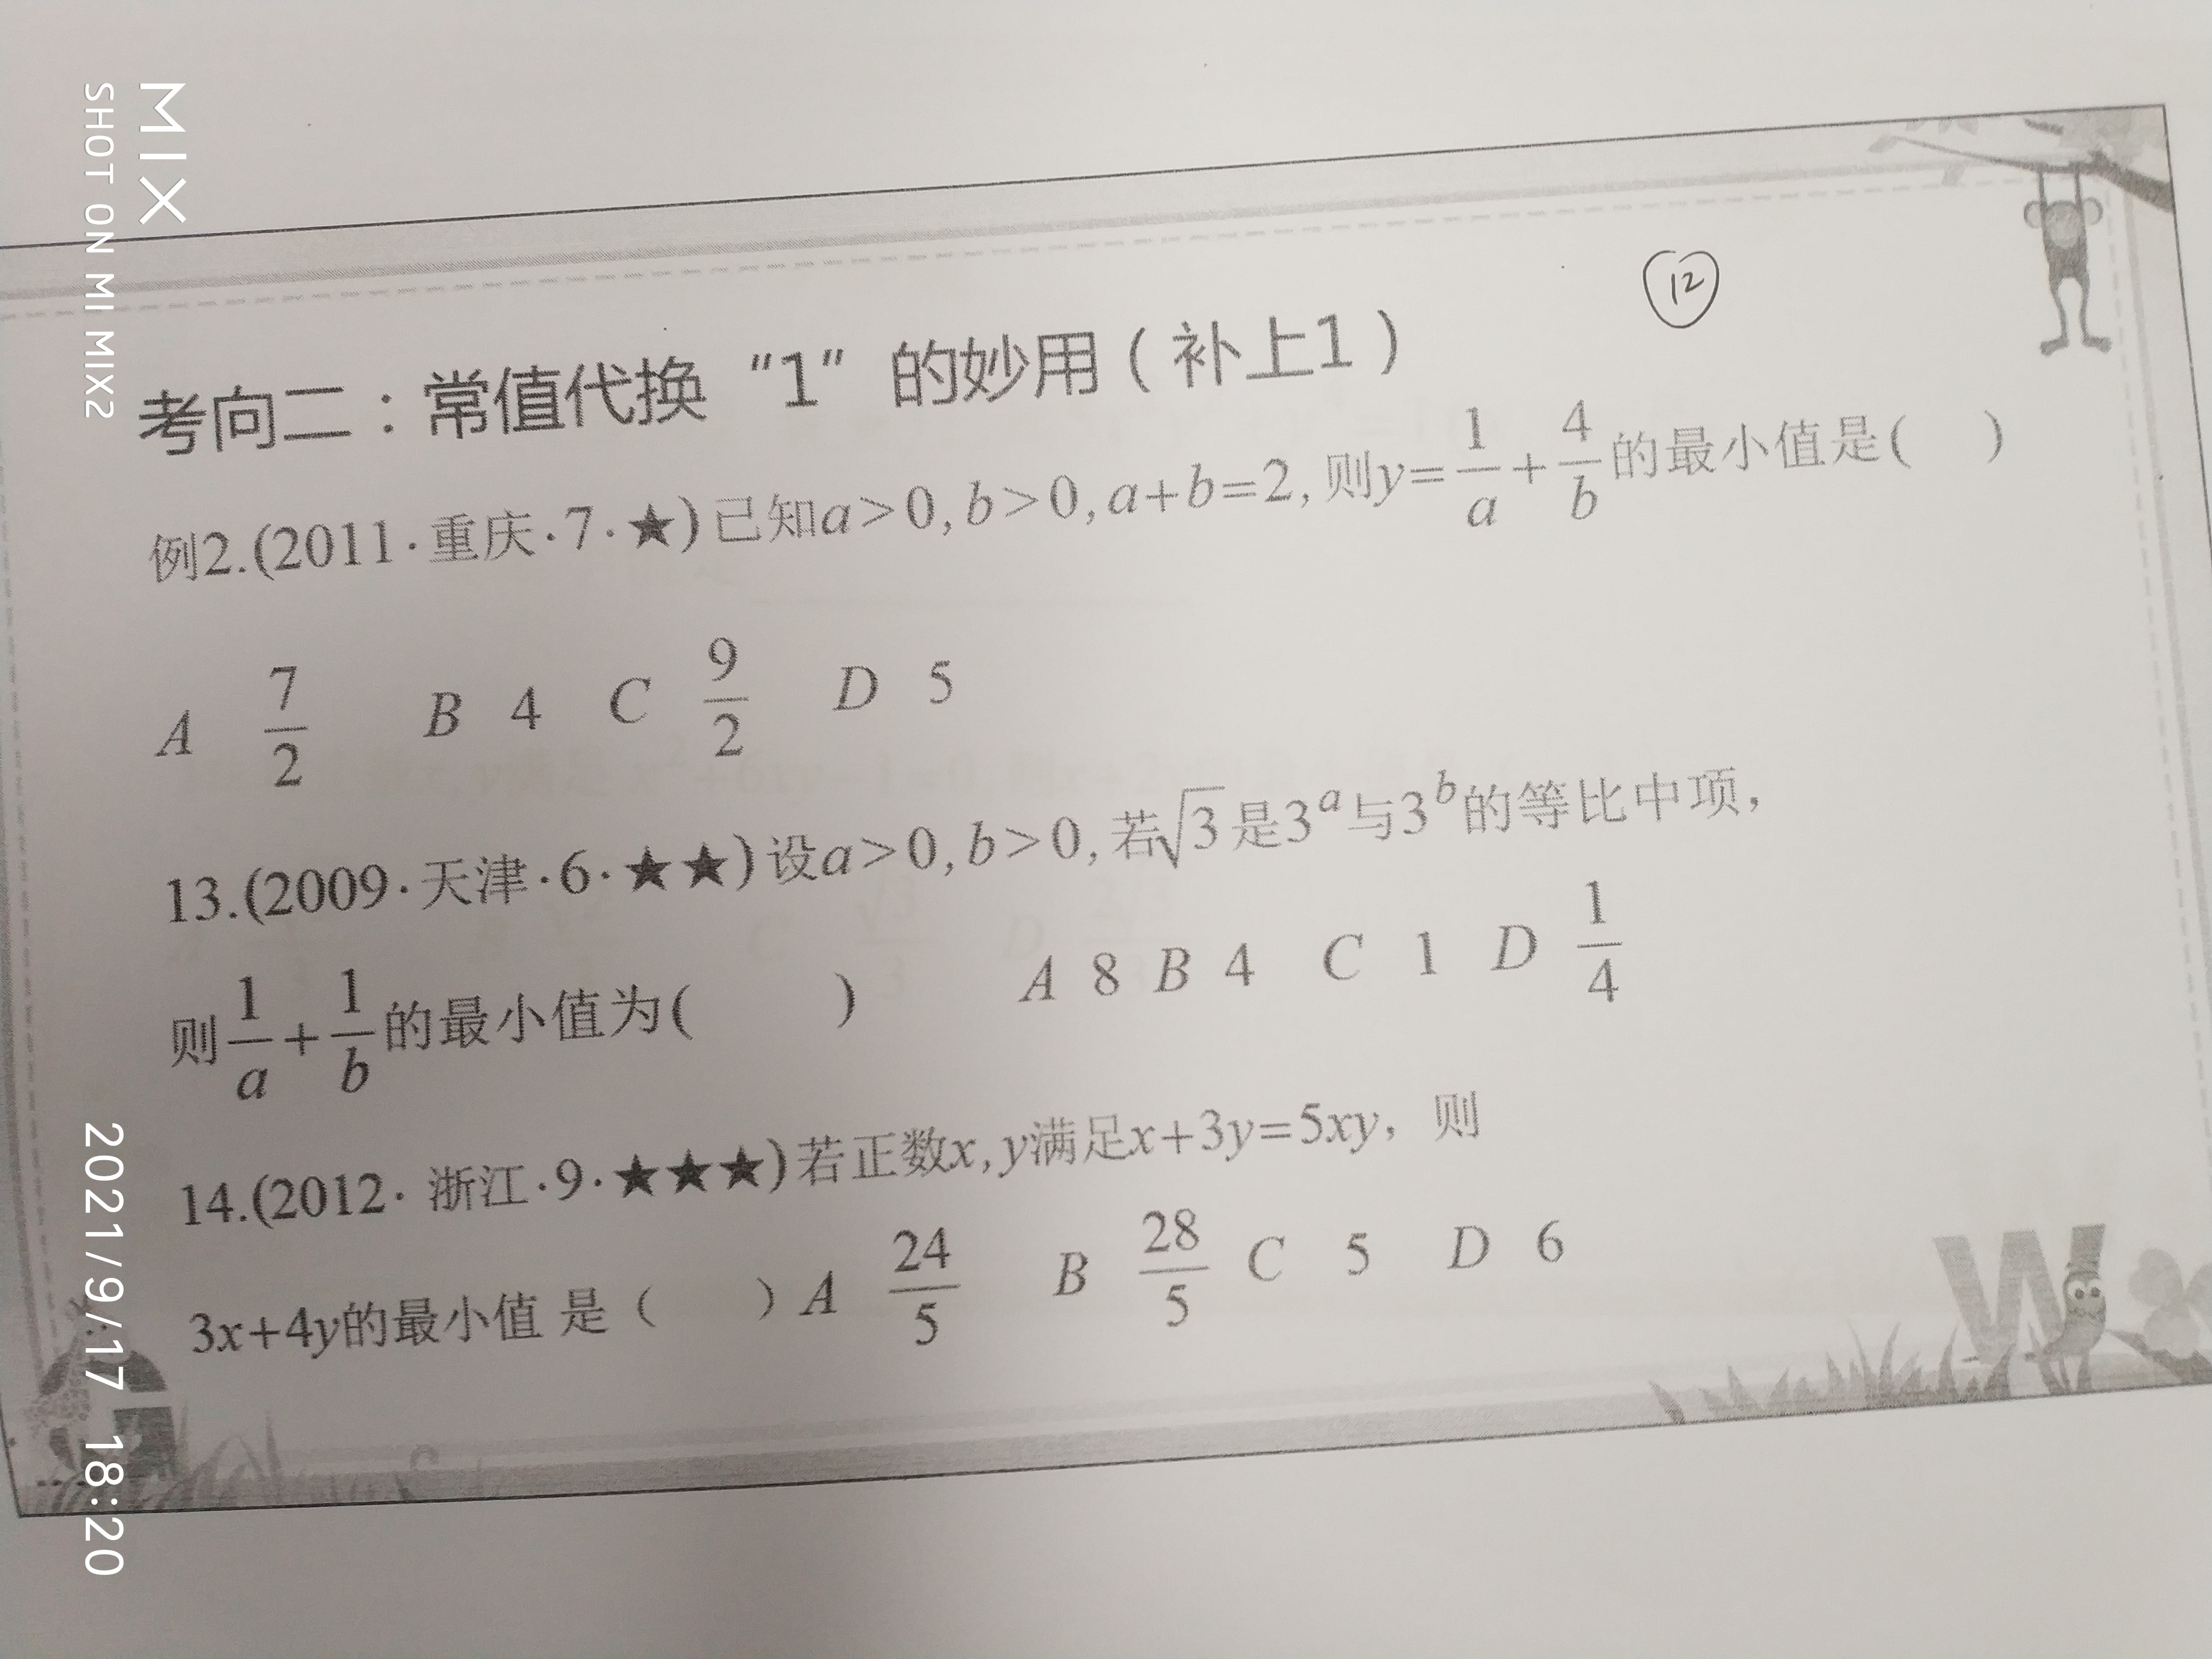 MIX
SHOT ON MI MIX2
12
考向二：常值代换“1”的妙用（补上1）
例2.(2011·重庆·7·★)已知a>0,b>0,a+b=2,则y=1/a+4/b的最小值是( )
A 7/2 B 4 C 9/2 D 5
13.(2009·天津·6·★★)设a>0,b>0,若√3是3^a与3^b的等比中项,
则1/a+1/b的最小值为( ) A 8 B 4 C 1 D 1/4
14.(2012·浙江·9·★★★)若正数x,y满足x+3y=5xy，则
3x+4y的最小值是（ ）A 24/5 B 28/5 C 5 D 6
W
2021/9/17 18:20